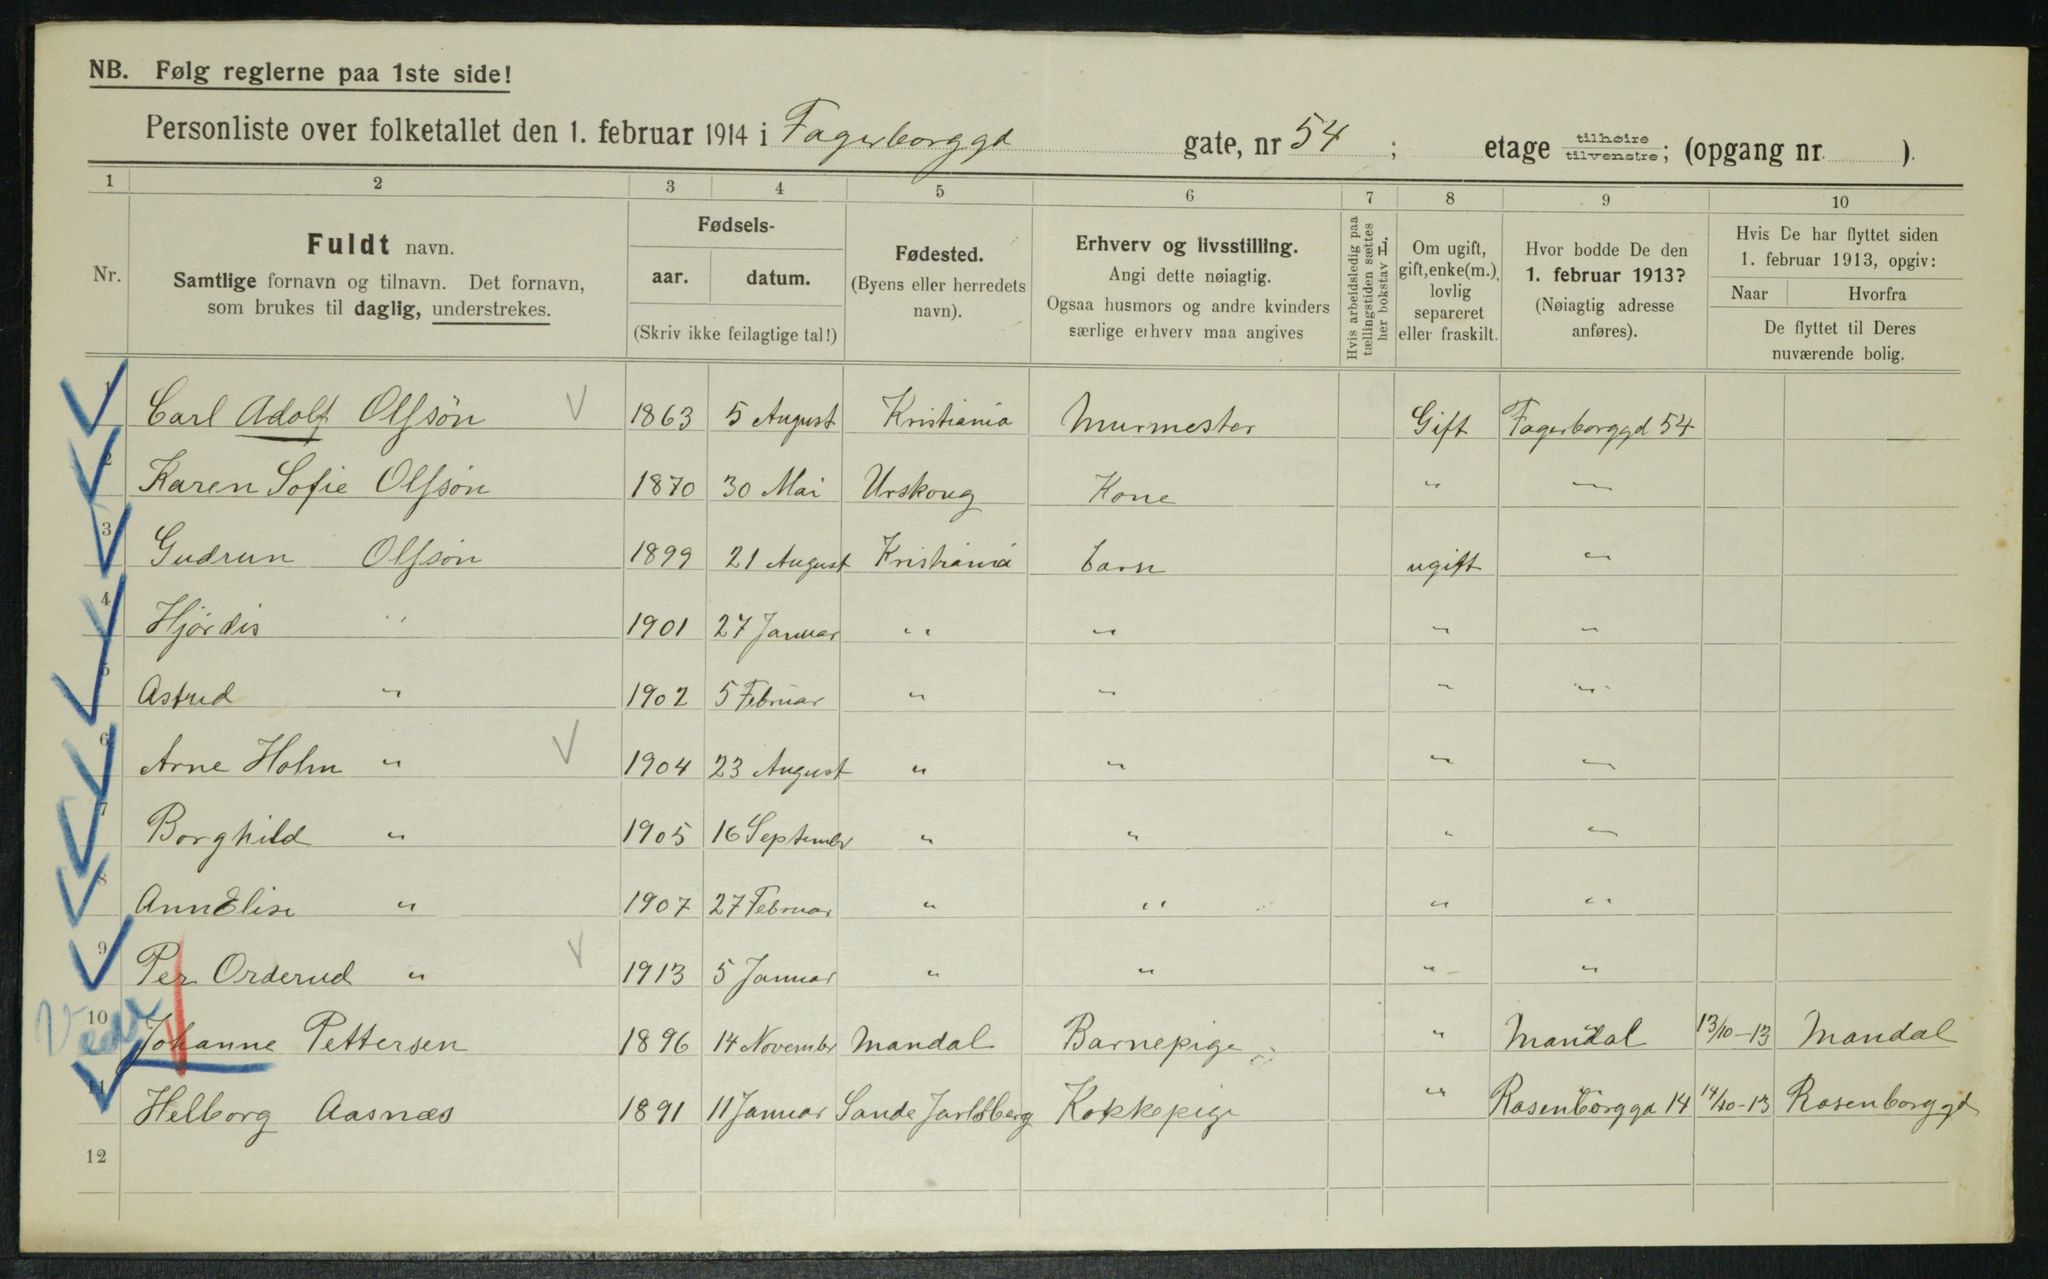 NB. Følg reglerne paa 1ste side!
Personliste over folketallet den 1. februar 1914 i Fagerborggd gate, nr 54 ; etage tilhøire tilvenstre; (opgang nr. ).
1 2 3 4 5 6 7 8 9 10
Nr.
Fuldt navn.
Samtlige fornavn og tilnavn. Det fornavn,
som brukes til daglig, understrekes.
Fødsels-
aar. datum.
(Skriv ikke feilagtige tal!)
Fødested.
(Byens eller herredets
navn).
Erhverv og livsstilling.
Angi dette nøiagtig.
Ogsaa husmors og andre kvinders
særlige erhverv maa angives
Hvis arbeidsledig paa
tællingstiden sættes
her bokstav H.
Om ugift,
gift, enke(m.),
lovlig
separeret
eller fraskilt.
Hvor bodde De den
1. februar 1913?
(Nøiagtig adresse
anføres).
Hvis De har flyttet siden
1. februar 1913, opgiv:
Naar Hvorfra
De flyttet til Deres
nuværende bolig.
1 Carl Adolf Olfsön 1863 5 August Kristiania Murmester Gift Fagerborggd 54
2 Karen Sofie Olfsön 1870 30 Mai Urskoug Kone " "
3 Gudrun Olfsön 1899 21 August Kristiania barn ugift "
4 Hjördis " 1901 27 Januar " " " "
5 Astrid " 1902 5 Februar " " " "
6 Arne Holm " 1904 23 August " " " "
7 Borghild " 1905 16 Septembr " " " "
8 AnnElise " 1907 27 Februar " " " "
9 Per Orderud " 1913 5 Januar " " " "
10 Johanne Pettersen 1896 14 Novembr Mandal Barnepige " Mandal 13/10-13 Mandal
11 Helborg Aasnæs 1891 11 Januar Sande Jarlsberg Kokkepige " Rosenborggd 14 14/10-13 Rosenborggd
12